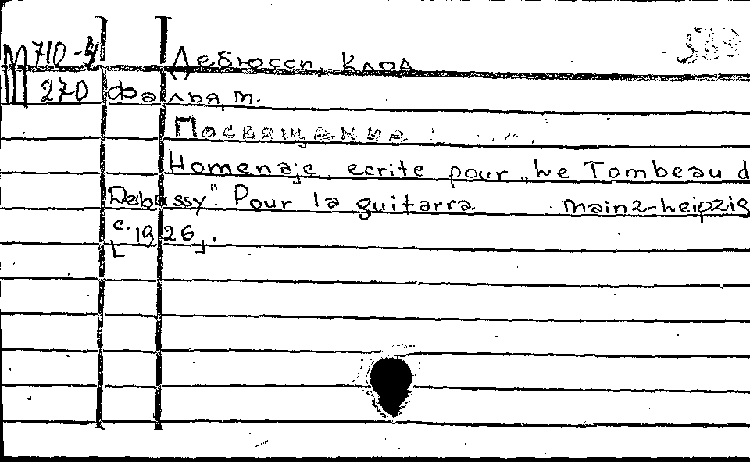 М 710-4 Дебюсси, Клод
270 Фалья, М.
Посвящение
Homenaje, ecrite pour "Le Tombeau d
Debussy" Pour la guitarra Mainz-Leipzig
[c. 1926].